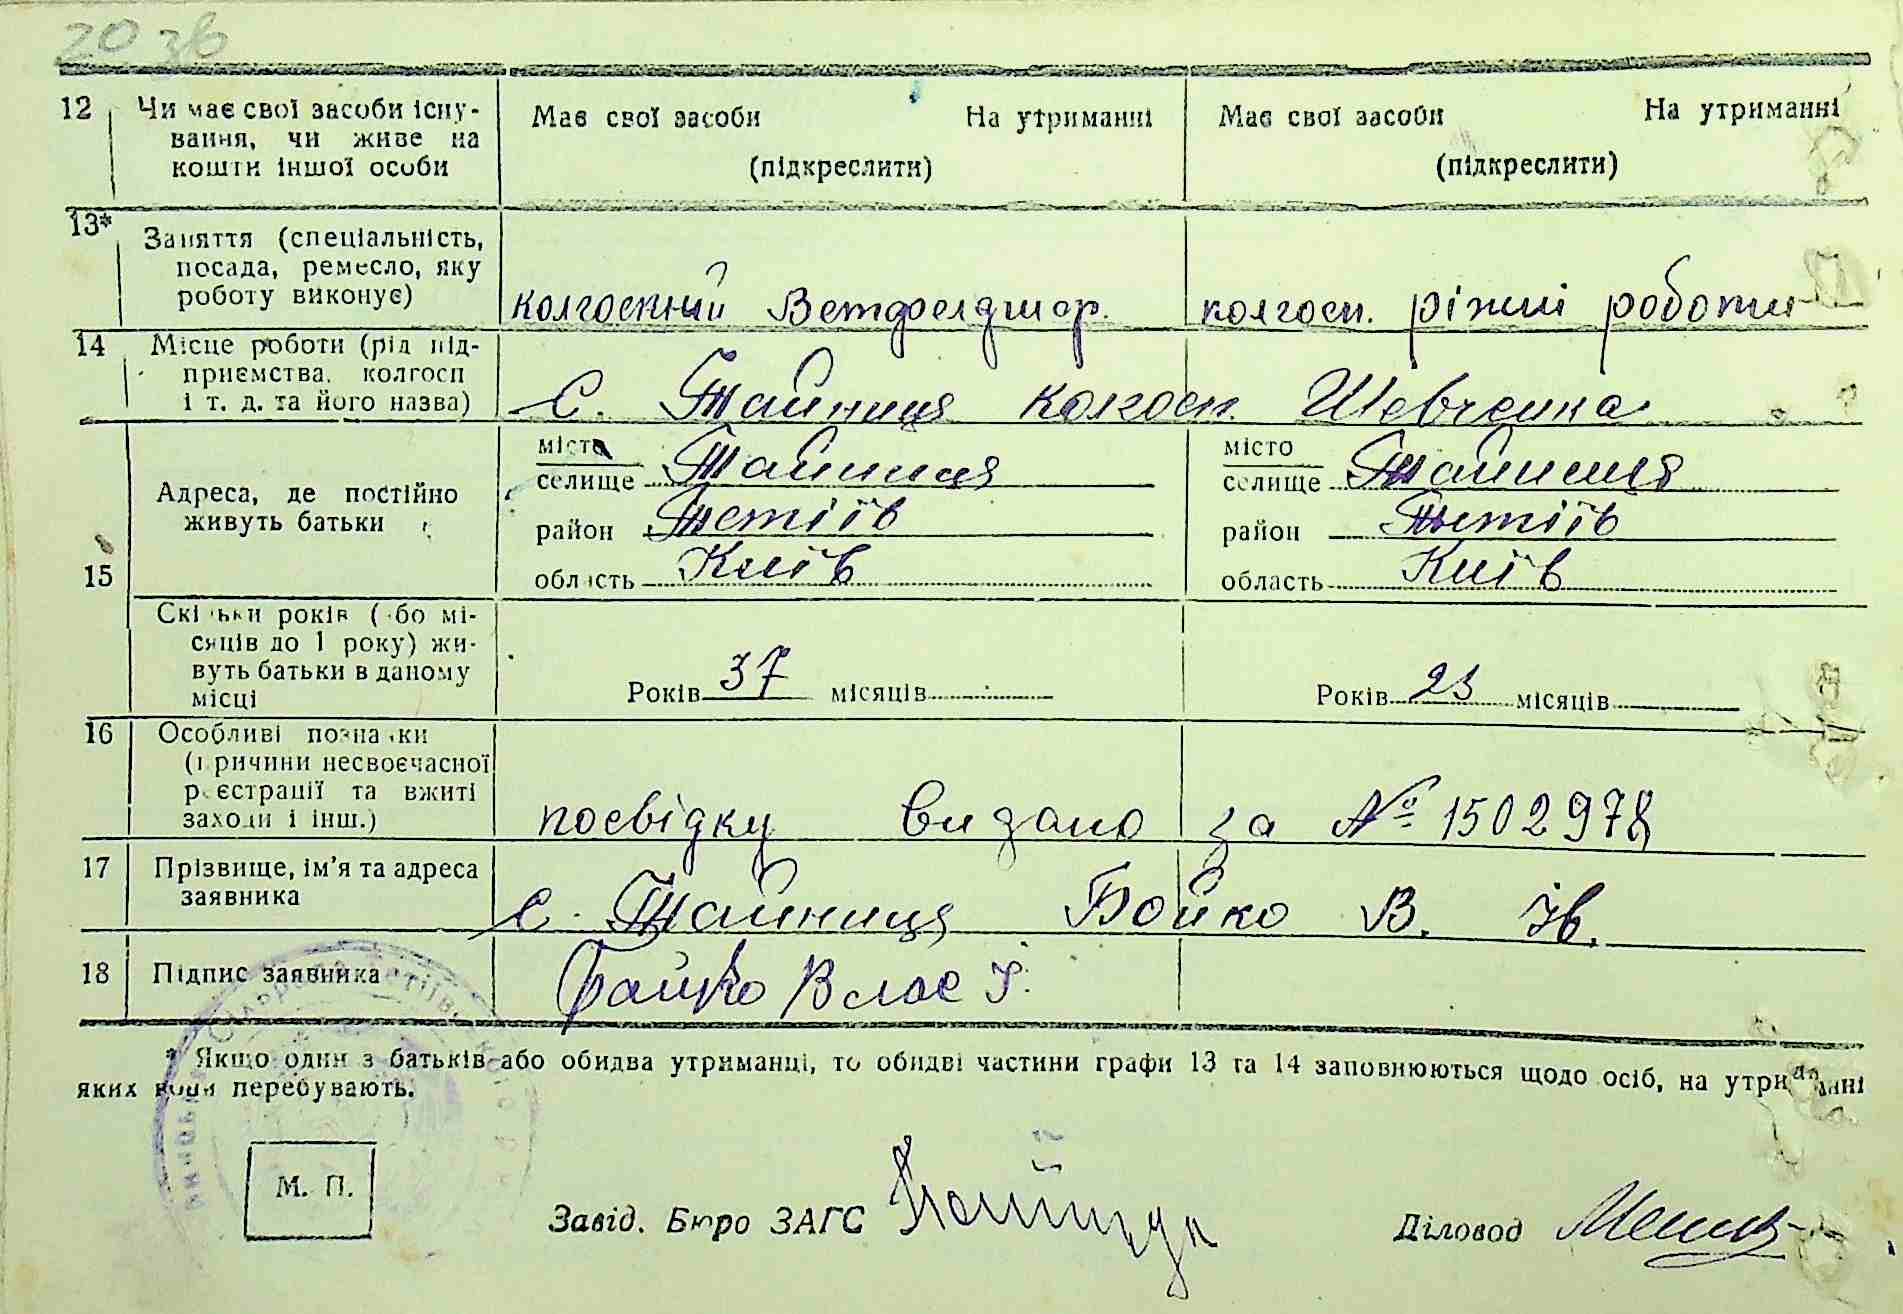 20 зв
12 Чи має свої засоби існу-
вання, чи живе на
кошти іншої особи
Має свої засоби На утриманні
(підкреслити)
Має свої засоби На утриманні
(підкреслити)
13* Заняття (спеціальність,
посада, ремесло, яку
роботу виконує)
колгоспний Ветфелдшор.
колгосп. ріжні роботи
14 Місце роботи (рід під-
приємства, колгосп
і т. д. та його назва)
с. Тайниця колгосп. Шевченка
15 Адреса, де постійно
живуть батьки
місто
селище Тайниця
район Тетіїв
область Київ
місто
селище Тайниця
район Тетіїв
область Київ
Скільки років (або мі-
сяців до 1 року) жи-
вуть батьки в даному
місці
Років 37 місяців
Років 23 місяців
16 Особливі познаки
(причини несвоєчасної
реєстрації та вжиті
заходи і інш.)
посвідку видано за № 1502978
17 Прізвище, ім'я та адреса
заявника
с. Тайниця Бойко В. Ів.
18 Підпис заявника
Бойко Влас І.
* Якщо один з батьків або обидва утриманці, то обидві частини графи 13 та 14 заповнюються щодо осіб, на утриманні
яких вони перебувають.
М. П.
Завід. Бюро ЗАГС
Діловод